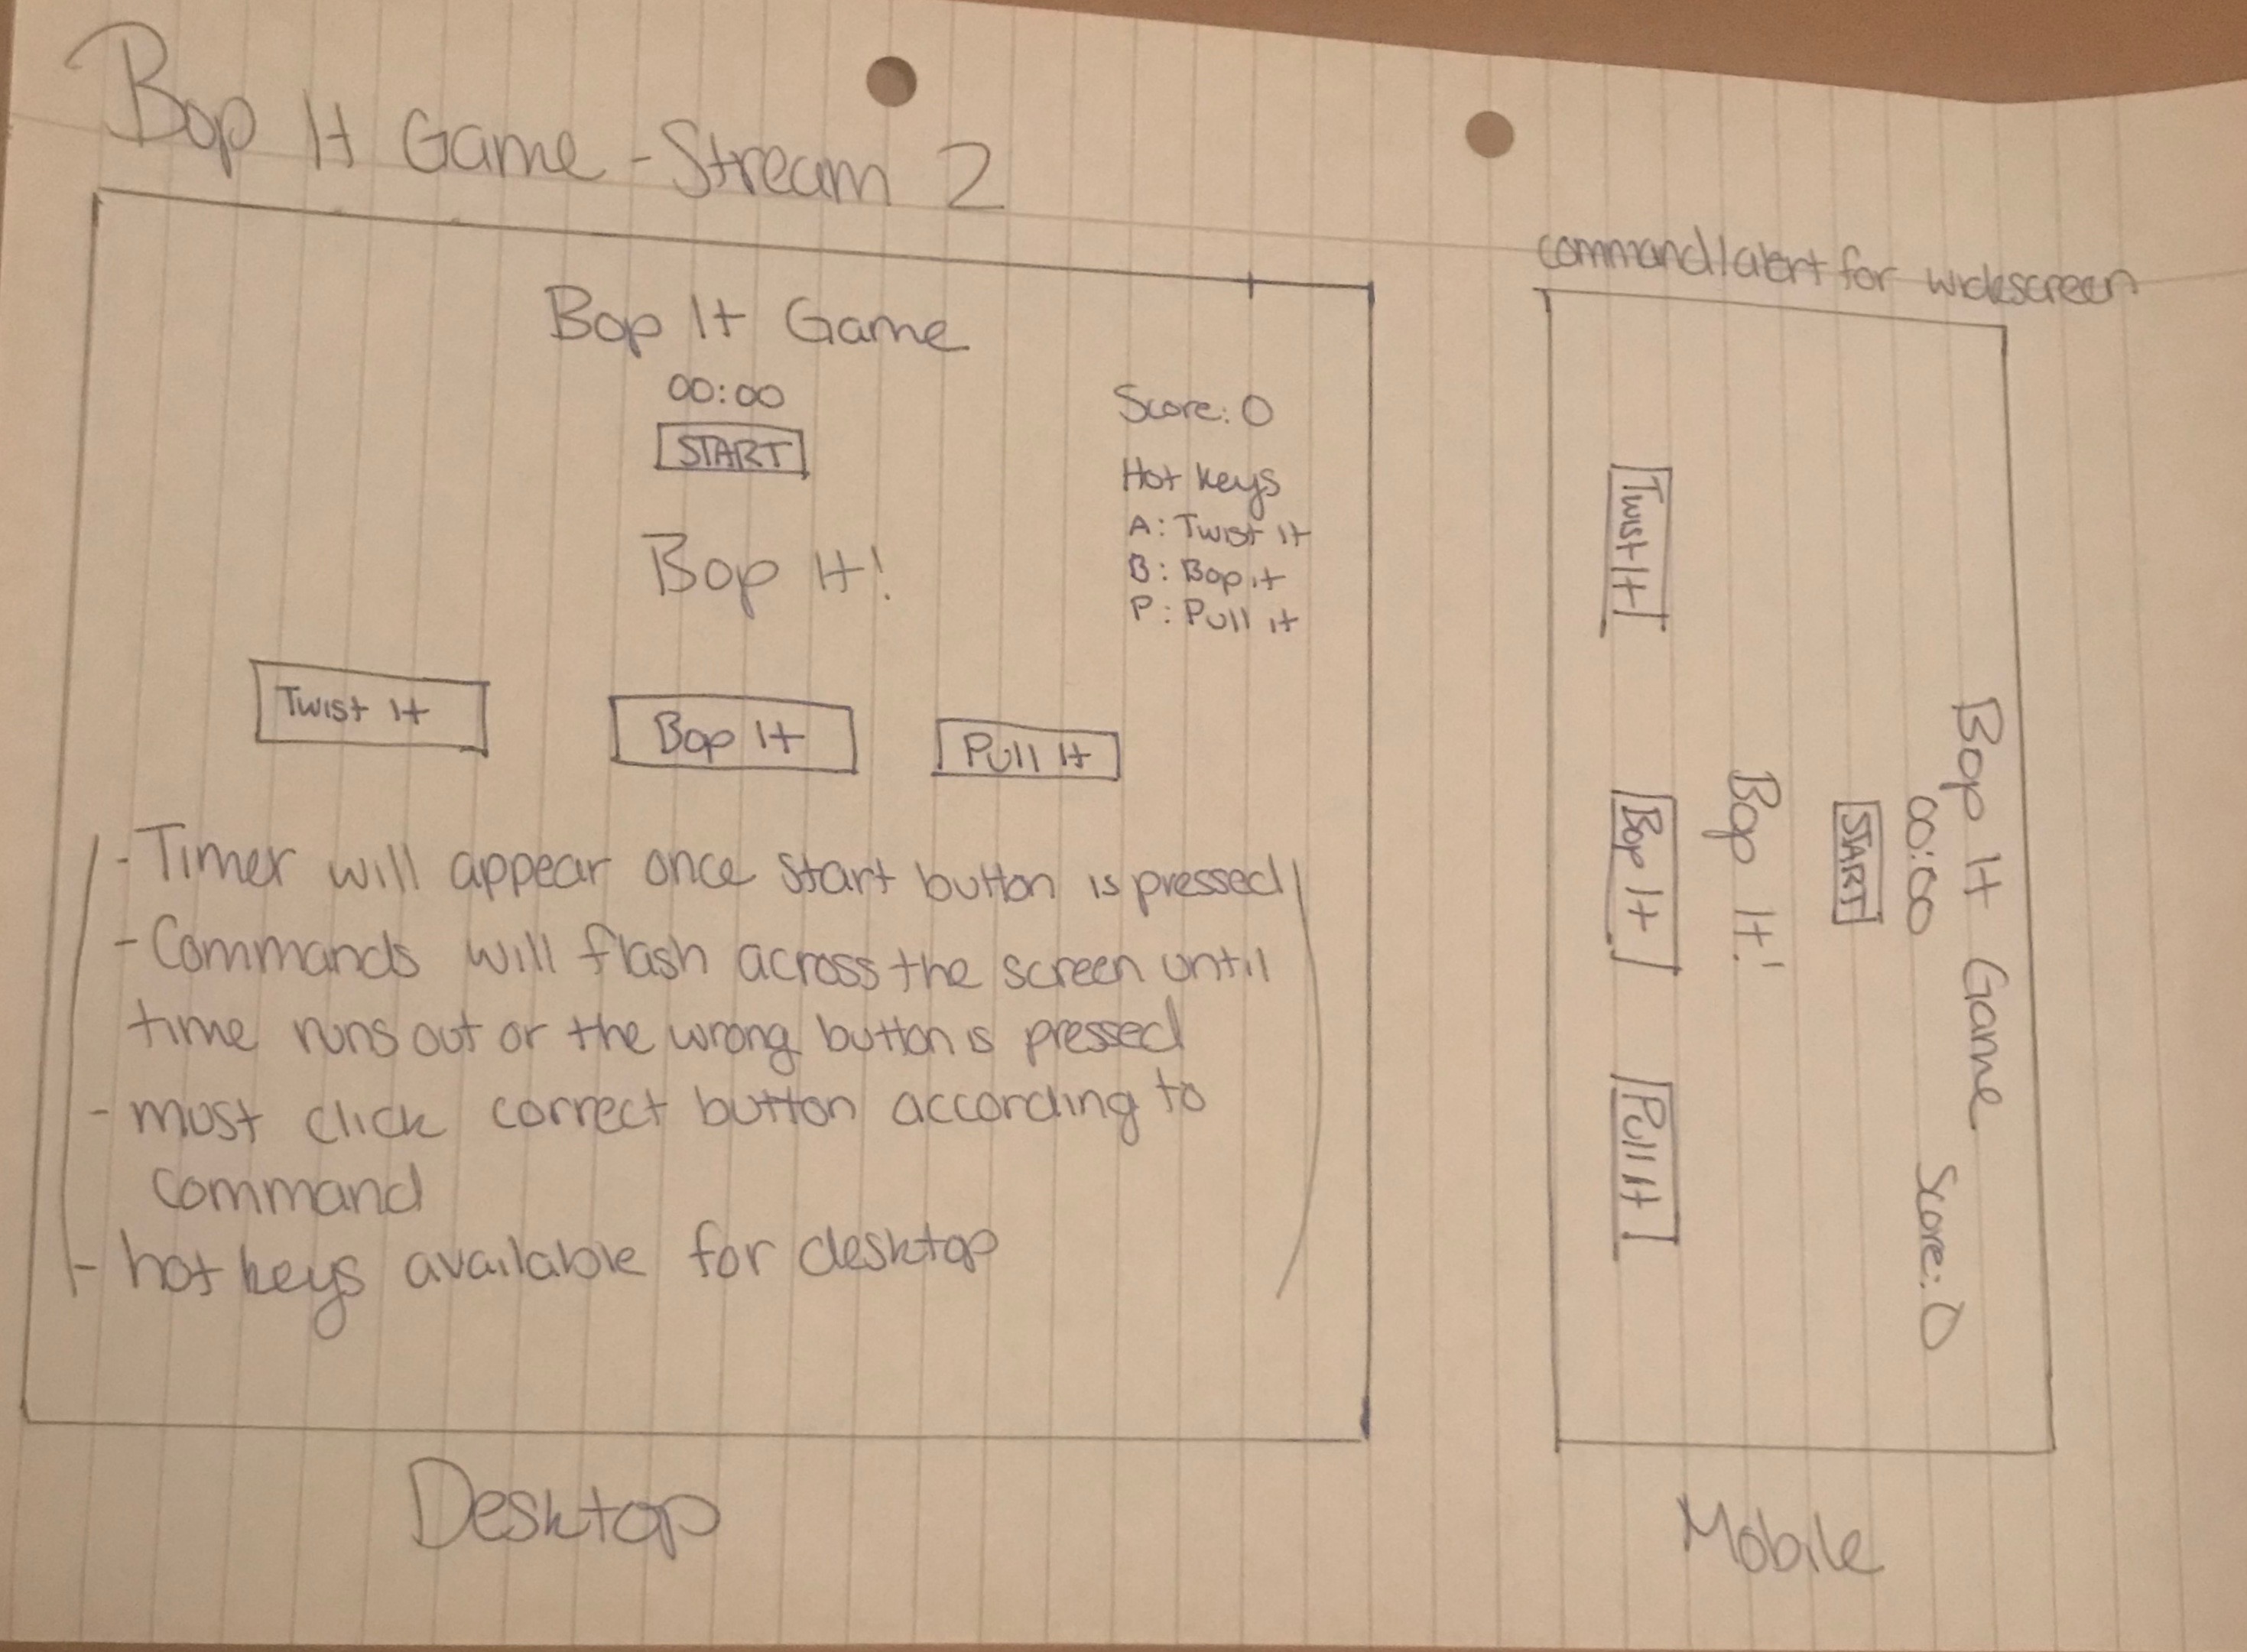 Bop It Game - Stream 2
Bop It Game
00:00
START
Score: 0
Hot keys
A: Twist it
B: Bop it
P: Pull it
Bop It!
Twist It
Bop It
Pull It
- Timer will appear once start button is pressed
- Commands will flash across the screen until
time runs out or the wrong button is pressed
- must click correct button according to
command
- hot keys available for desktop
Desktop
command/alert for widescreen
Bop It Game
00:00
Score: 0
START
Bop It!
Twist It
Bop It
Pull It
Mobile